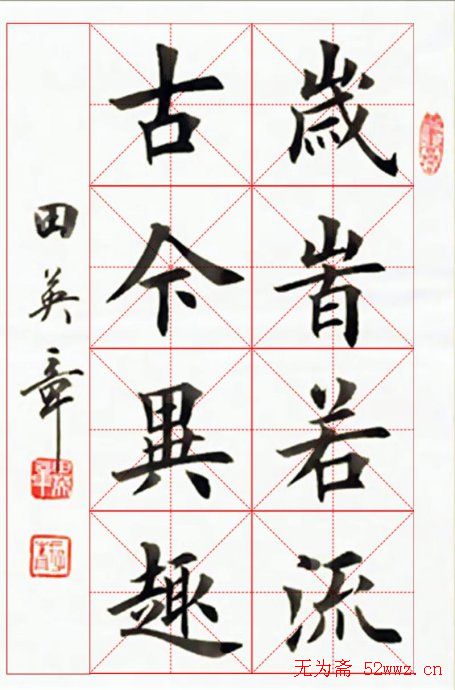 嵗旹若流
古今異趣
田英章
无为斋 52wwz.cn